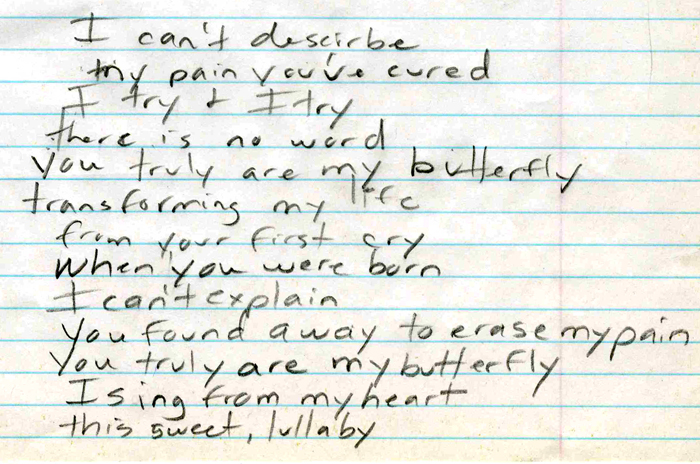 I can't descirbe
my pain you've cured
I try & I try
there is no word
you truly are my butterfly
transforming my life
from your first cry
when you were born
I can't explain
you found away to erase my pain
You truly are my butterfly
I sing from my heart
this sweet, lullaby